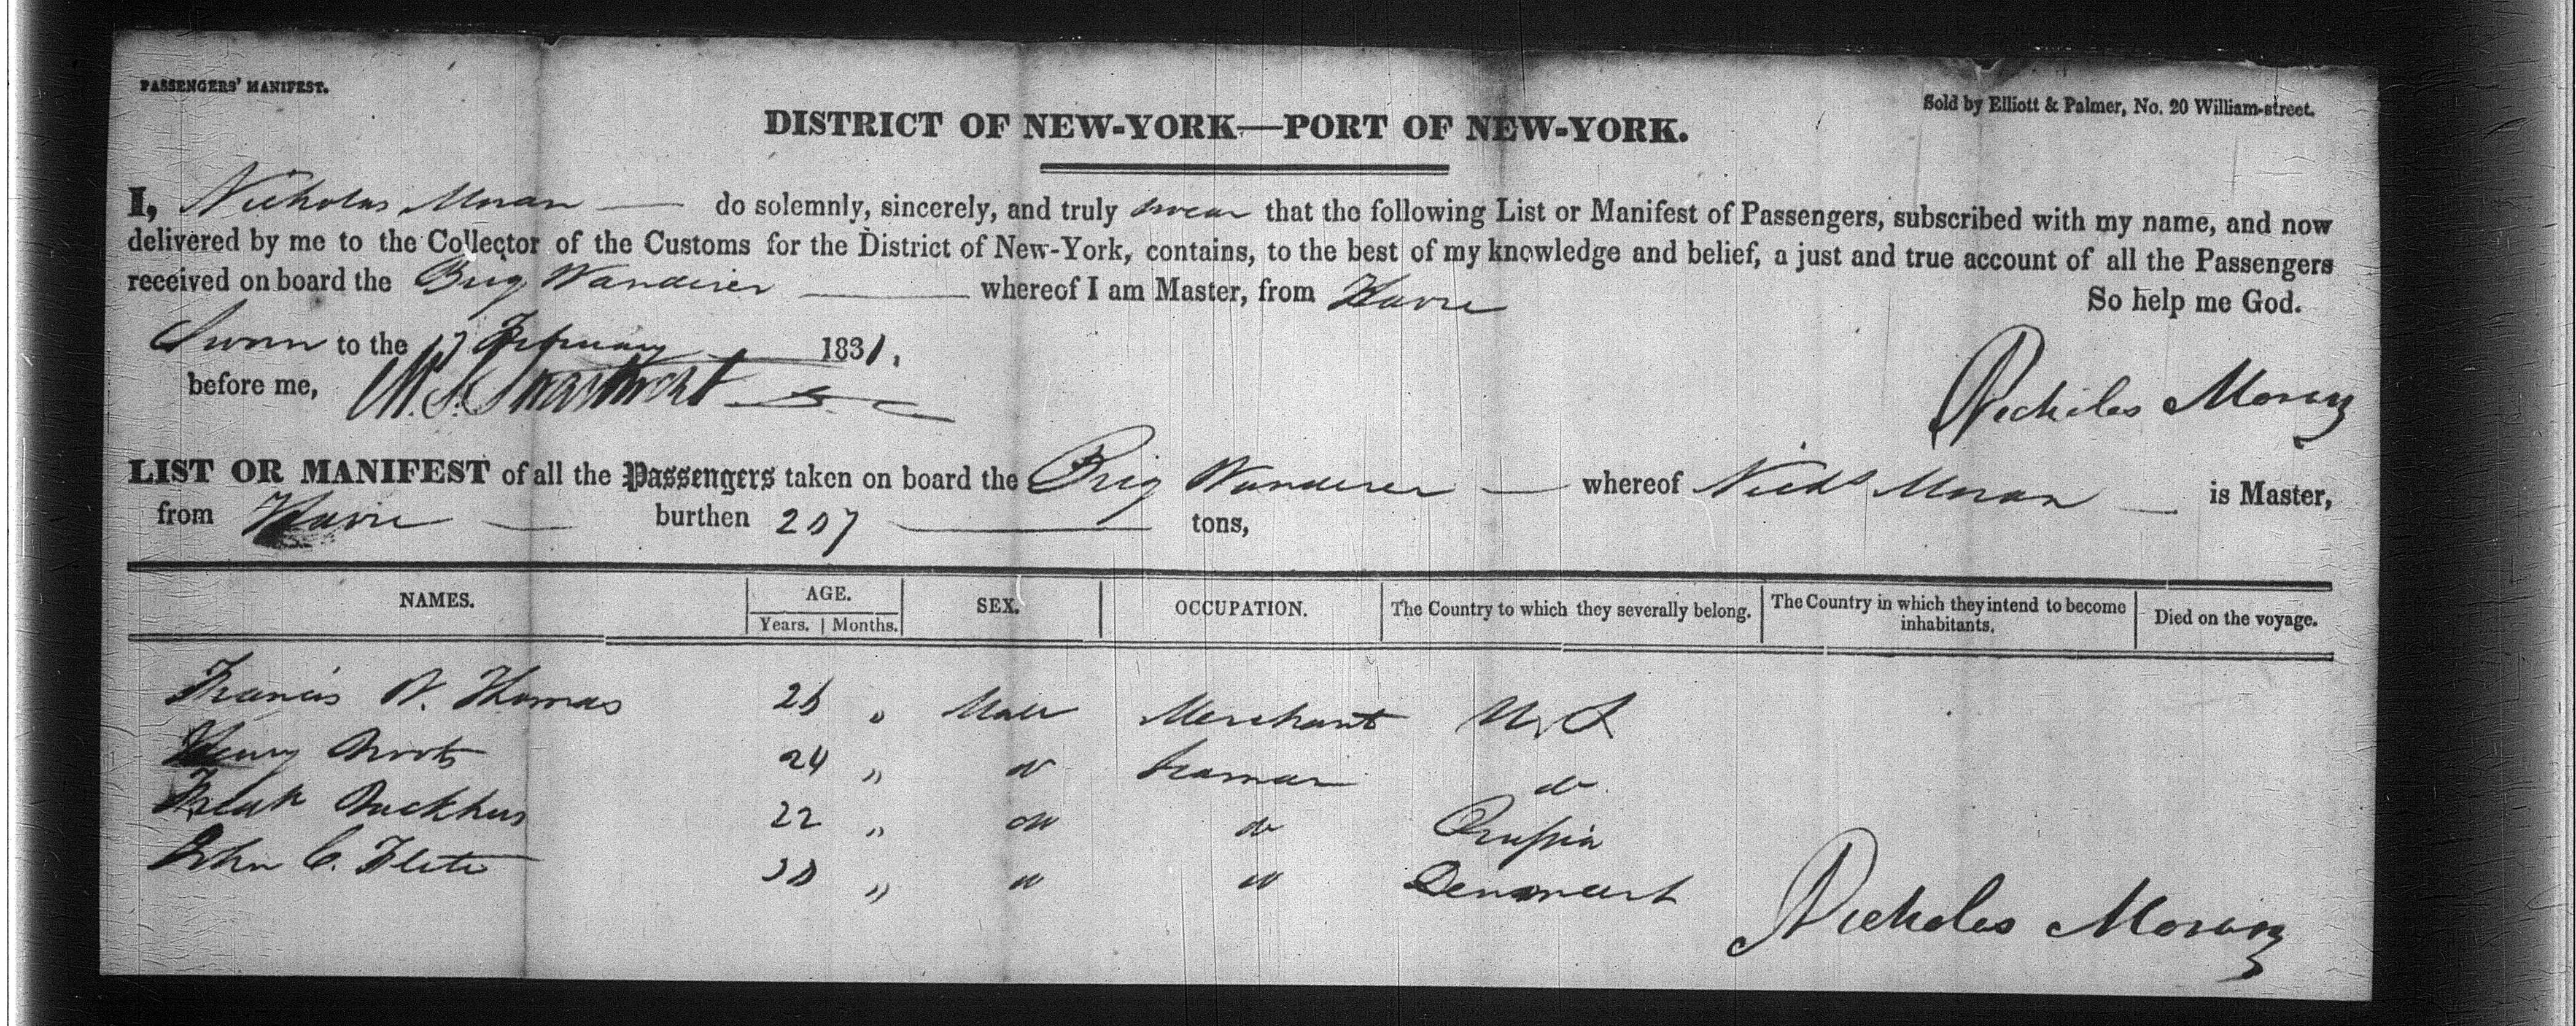 PASSENGERS' MANIFEST.
Sold by Elliott & Palmer, No. 20 William-street.
DISTRICT OF NEW-YORK—PORT OF NEW-YORK.
I, Nicholas Moran — do solemnly, sincerely, and truly swear that the following List or Manifest of Passengers, subscribed with my name, and now
delivered by me to the Collector of the Customs for the District of New-York, contains, to the best of my knowledge and belief, a just and true account of all the Passengers
received on board the Brig Wanderer — whereof I am Master, from Havre So help me God.
Sworn to the 17 February 1831.
before me,
Nicholas Moran
LIST OR MANIFEST of all the Passengers taken on board the Brig Wanderer — whereof Nichs Moran — is Master,
from Havre — burthen 207 — tons,
NAMES. AGE. SEX. OCCUPATION. The Country to which they severally belong. The Country in which they intend to become inhabitants. Died on the voyage.
Years. Months.
Francis W. Thomas 26 " Male Merchant U, S
Henry 24 " do Seaman do
22 " do do Prussia
John C. " do do Denmark
Nicholas Moran